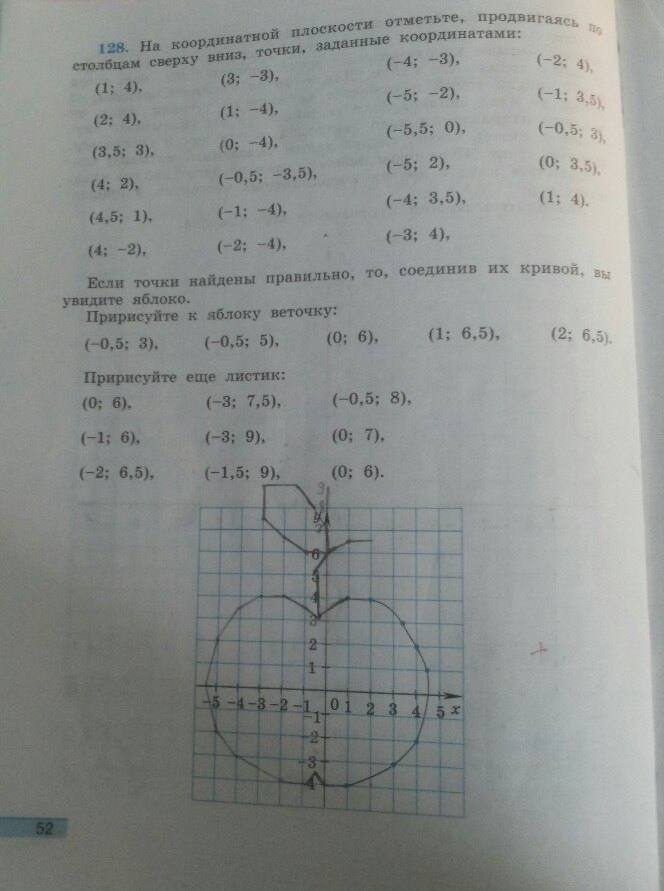 128. На координатной плоскости отметьте, продвигаясь по
столбцам сверху вниз, точки, заданные координатами:
(1; 4), (3; −3), (−4; −3), (−2; 4),
(2; 4), (1; −4), (−5; −2), (−1; 3,5),
(3,5; 3), (0; −4), (−5,5; 0), (−0,5; 3),
(4; 2), (−0,5; −3,5), (−5; 2), (0; 3,5),
(4,5; 1), (−1; −4), (−4; 3,5), (1; 4).
(4; −2), (−2; −4), (−3; 4),
Если точки найдены правильно, то, соединив их кривой, вы
увидите яблоко.
Пририсуйте к яблоку веточку:
(−0,5; 3), (−0,5; 5), (0; 6), (1; 6,5), (2; 6,5).
Пририсуйте еще листик:
(0; 6), (−3; 7,5), (−0,5; 8),
(−1; 6), (−3; 9), (0; 7),
(−2; 6,5), (−1,5; 9), (0; 6).
9
y
6
5
4
3
2
1
−5 −4 −3 −2 −1 0 1 2 3 4 5 x
−1
−2
−3
4
52